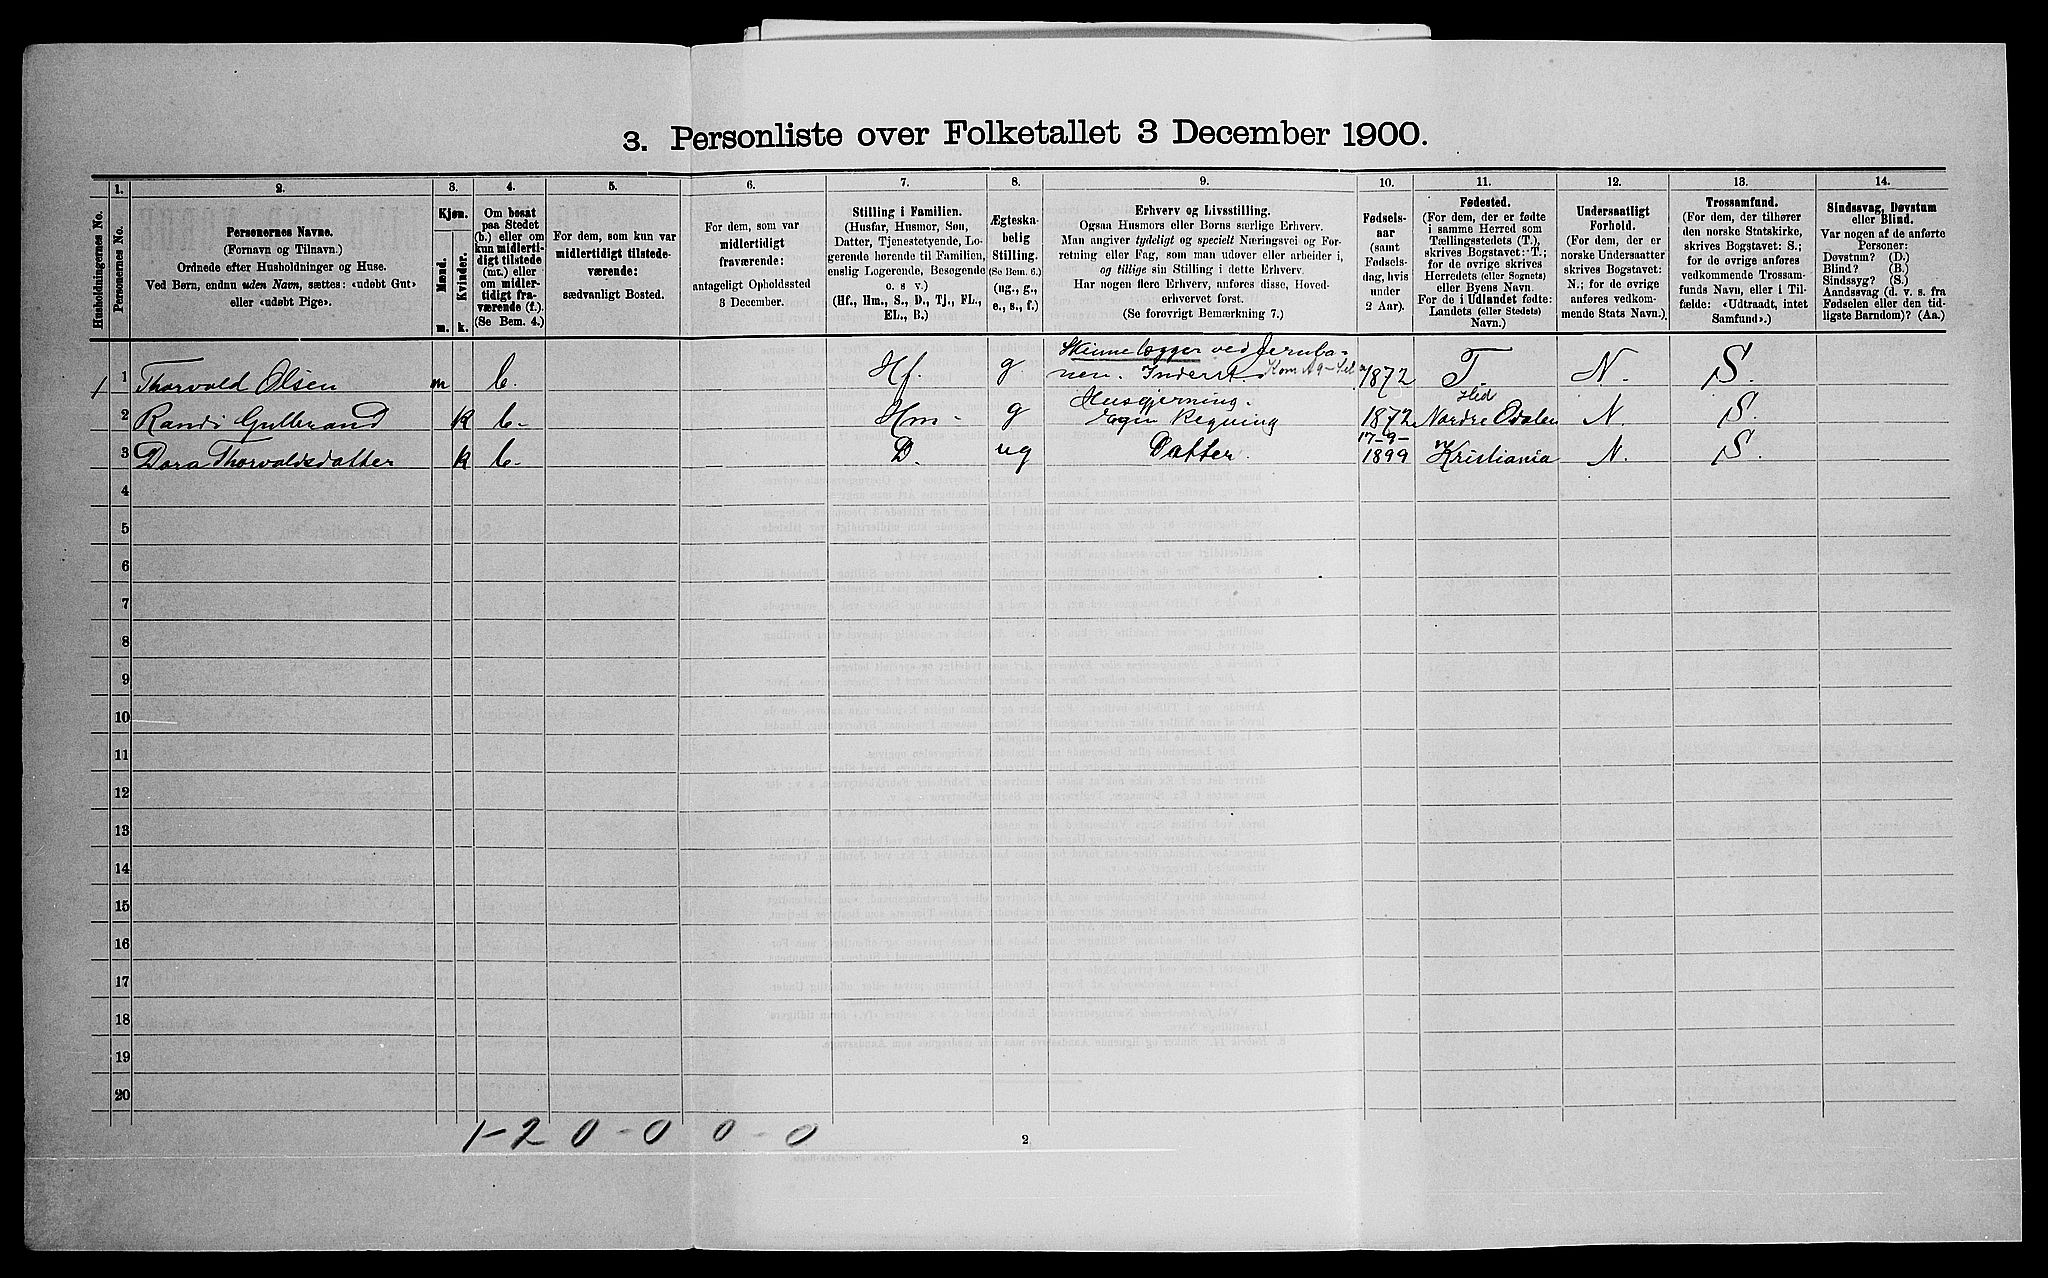 3. Personliste over Folketallet 3 December 1900.
Husholdningernes No.
1.
Personernes No.
2.
Personernes Navne.
(Fornavn og Tilnavn.)
Ordnede efter Husholdninger og Huse.
Ved Børn, endnu uden Navn, sættes: «udøbt Gut»
eller «udøbt Pige».
3.
Kjøn.
Mænd.
Kvinder.
m. k.
4.
Om bosat
paa Stedet
(b.) eller om
kun midlerti-
digt tilstede
(mt.) eller
om midler-
tidigt fra-
værende (f.).
(Se Bem. 4.)
5.
For dem, som kun var
midlertidigt tilstede-
værende:
sædvanligt Bosted.
6.
For dem, som var
midlertidigt
fraværende:
antageligt Opholdssted
3 December.
7.
Stilling i Familien.
(Husfar, Husmor, Søn,
Datter, Tjenestetyende, Lo-
gerende hørende til Familien,
enslig Logerende, Besøgende
o. s. v.)
(Hf., Hm., S., D., Tj., FL.,
EL., B.)
8.
Ægteska-
belig
Stilling.
(Se Bem. 6.)
(ug., g.,
e., s., f.)
9.
Erhverv og Livsstilling.
Ogsaa Husmors eller Børns særlige Erhverv.
Man angiver tydeligt og specielt Næringsvei og For-
retning eller Fag, som man udøver eller arbeider i,
og tillige sin Stilling i dette Erhverv.
Har nogen flere Erhverv, anføres disse, Hoved-
erhvervet først.
(Se forøvrigt Bemærkning 7.)
10.
Fødsels-
aar
(samt
Fødsels-
dag, hvis
under
2 Aar).
11.
Fødested.
(For dem, der er fødte
i samme Herred som
Tællingsstedets (T.),
skrives Bogstavet: T.;
for de øvrige skrives
Herredets (eller Sognets)
eller Byens Navn.
For de i Udlandet fødte:
Landets (eller Stedets)
Navn.)
12.
Undersaatligt
Forhold.
(For dem, der er
norske Undersaatter
skrives Bogstavet:
N.; for de øvrige
anføres vedkom-
mende Stats Navn.)
13.
Trossamfund.
(For dem, der tilhører
den norske Statskirke,
skrives Bogstavet: S.;
for de øvrige anføres
vedkommende Trossam-
funds Navn, eller i Til-
fælde: «Udtraadt, intet
Samfund».)
14.
Sindssvag, Døvstum
eller Blind.
Var nogen af de anførte
Personer:
Døvstum? (D.)
Blind? (B.)
Sindssyg? (S.)
Aandssvag (d. v. s. fra
Fødselen eller den tid-
ligste Barndom)? (Aa.)
Skinnelægger ved Jernba-
1 1 Thorvald Olsen m b. Hf. g nen. 1872 T. N. S.
Husgjerning. Hed
2 Randi Gulbrand k b. Hm. g Egen Regning 1872 Nordre Odalen N. S.
17-9-
3 Dora Thorvaldsdatter k b. D. ug Datter. 1899 Kristiania N. S.
4
5
6
7
8
9
10
11
12
13
14
15
16
17
18
19
20
1-2 0-0 0-0
2